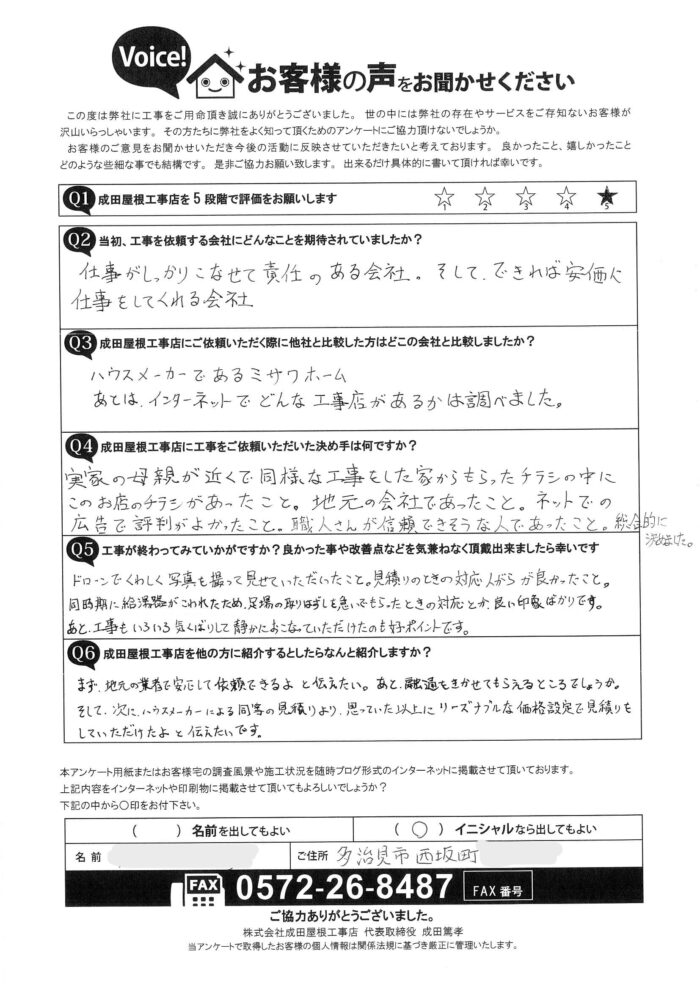 Voice!
お客様の声をお聞かせください
この度は弊社に工事をご用命頂き誠にありがとうございました。 世の中には弊社の存在やサービスをご存知ないお客様が
沢山いらっしゃいます。 その方たちに弊社をよく知って頂くためのアンケートにご協力頂けないでしょうか。
お客様のご意見をお聞かせいただき今後の活動に反映させていただきたいと考えております。 良かったこと、嬉しかったこと
どのような些細な事でも結構です。 是非ご協力お願い致します。 出来るだけ具体的に書いて頂ければ幸いです。
Q1 成田屋根工事店を5段階で評価をお願いします
1 2 3 4 5
Q2 当初、工事を依頼する会社にどんなことを期待されていましたか?
仕事がしっかりこなせて責任のある会社。そして、できれば安価に
仕事をしてくれる会社
Q3 成田屋根工事店にご依頼いただく際に他社と比較した方はどこの会社と比較しましたか?
ハウスメーカーであるミサワホーム
あとは、インターネットでどんな工事店があるかは調べました。
Q4 成田屋根工事店に工事をご依頼いただいた決め手は何ですか?
実家の母親が近くで同様な工事をした家からもらったチラシの中に
このお店のチラシがあったこと。地元の会社であったこと。ネットでの
広告で評判がよかったこと。職人さんが信頼できそうな人であったこと。総合的に
決めました。
Q5 工事が終わってみていかがですか?良かった事や改善点などを気兼ねなく頂戴出来ましたら幸いです
ドローンでくわしく写真も撮って見せていただいたこと。見積りのときの対応、人がらが良かったこと。
同時期に給湯器がこわれたため、足場の取りはずしを急いでもらったときの対応とか、良い印象ばかりです。
あと、工事もいろいろ気くばりして静かにおこなっていただけたのも好ポイントです。
Q6 成田屋根工事店を他の方に紹介するとしたらなんと紹介しますか?
まず、地元の業者で安心して依頼できるよと伝えたい。あと、融通もきかせてもらえるところでしょうか。
そして、次に、ハウスメーカーによる同等の見積りより、思っていた以上にリーズナブルな価格設定で見積りを
していただけたよと伝えたいです。
本アンケート用紙またはお客様宅の調査風景や施工状況を随時ブログ形式のインターネットに掲載させて頂いております。
上記内容をインターネットや印刷物に掲載させて頂いてもよろしいでしょうか?
下記の中から○印をお付下さい。
( ) 名前を出してもよい
( ○ ) イニシャルなら出してもよい
名 前
ご住所 多治見市西坂町
FAX 0572-26-8487 FAX 番号
ご協力ありがとうございました。
株式会社成田屋根工事店 代表取締役 成田篤孝
当アンケートで取得したお客様の個人情報は関係法規に基づき厳正に管理いたします。